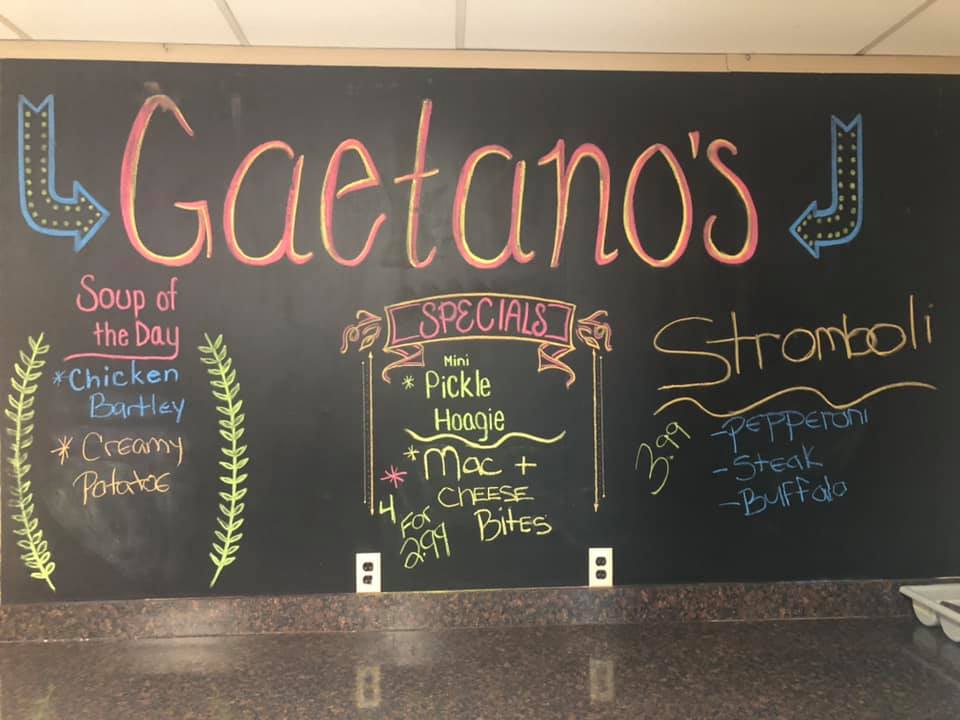 Gaetano's
Soup of
the Day
*Chicken
Bartley
* Creamy
Potatoe
SPECIALS
Mini
* Pickle
Hoagie
* * Mac +
CHEESE
Bites
4
For
2.99
Stromboli
3.99
-PEPPERONI
-Steak
-Buffalo